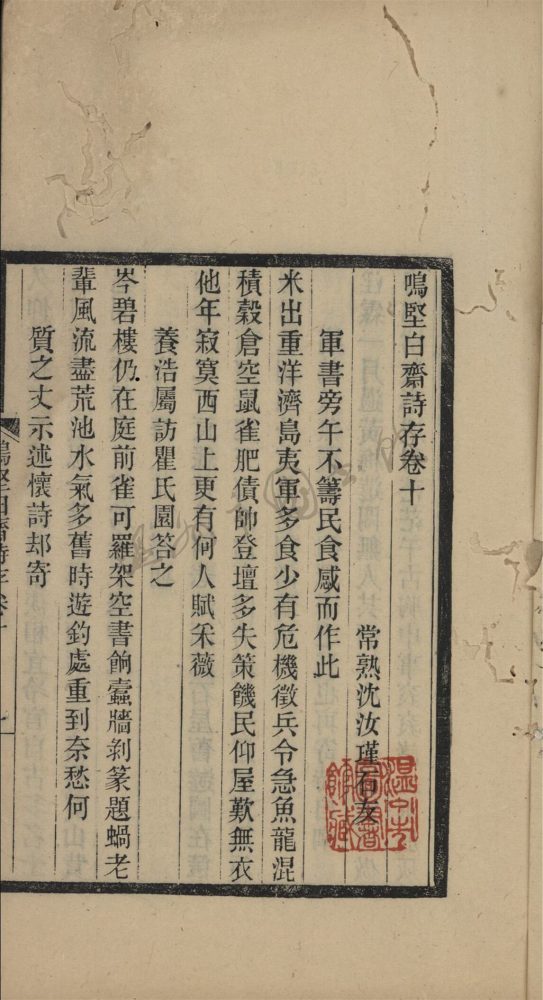 鳴堅白齋詩存卷十
常熟沈汝瑾石友
軍書旁午不籌民食感而作此
米出重洋濟島夷軍多食少有危機徵兵令急魚龍混
積穀倉空鼠雀肥債帥登壇多失策饑民仰屋歎無衣
他年寂寞西山上更有何人賦采薇
養浩屬訪瞿氏園答之
岑碧樓仍在庭前雀可羅架空書餉蠹牆剝篆題蝸老
輩風流盡荒池水氣多舊時遊釣處重到奈愁何
質之丈示述懷詩却寄
鳴堅白齋詩存卷十